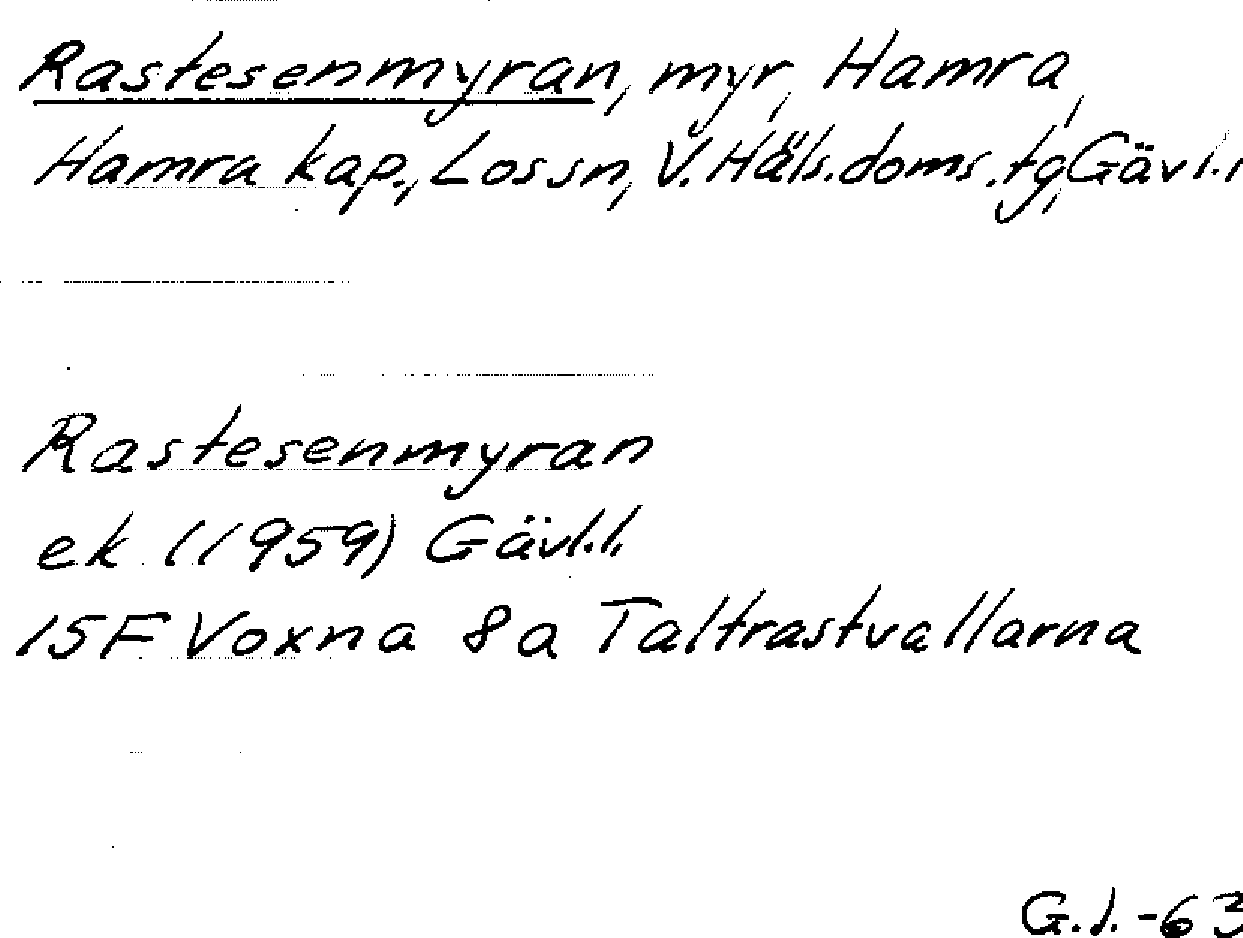 Rastesenmyran, myr, Hamra,
Hamra kap., Los sn, V. Häls. doms. tg, Gävl.l
Rastesenmyran
ek. (1959) Gävl.l.
15F Voxna 8a Taltrastvallarna
G.J.-63